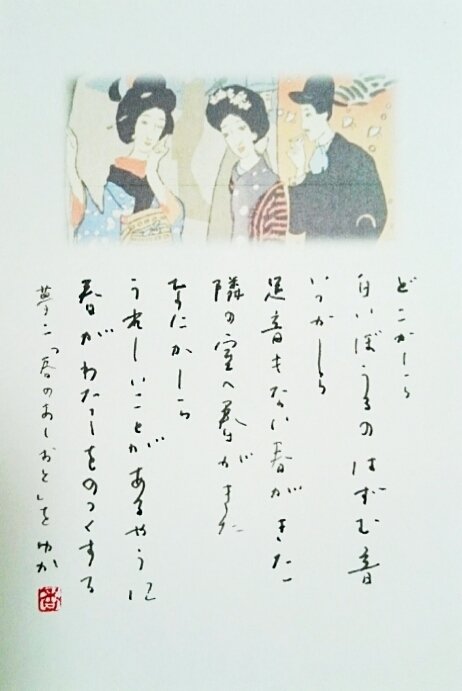 どこかしら
白いぼうるのはずむ音
いつかしら
足音もない春がきた
隣の室へ春がきた
なにかしら
うれしいことがあるやうに
春がわたしをのっくする
夢二「春のあしおと」を ゆか